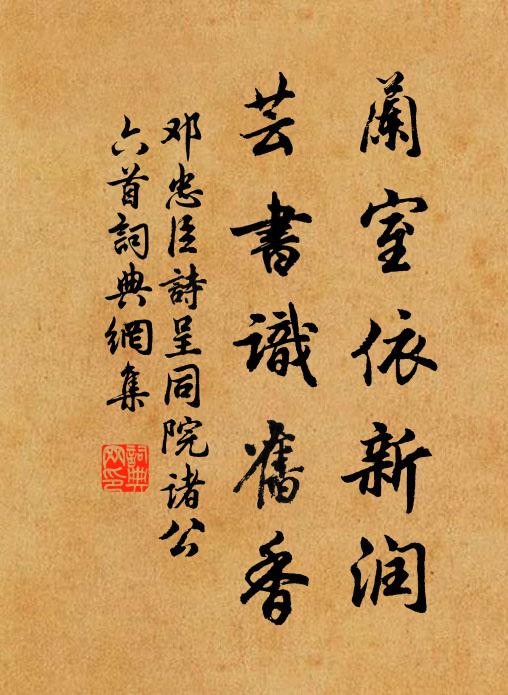 蘭室依新润
芸書識舊香
邓忠臣詩呈同院诸公
六首詞典網集
詞典
网印